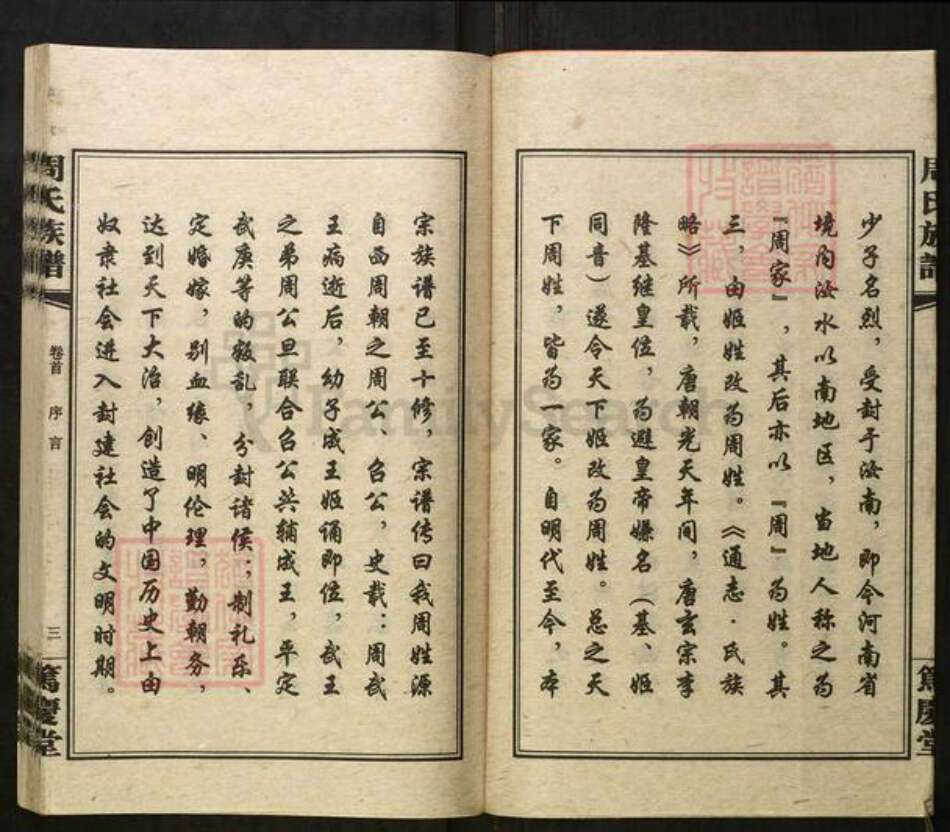 少子名烈，受封于汝南，即今河南省
境内汝水以南地区，当地人称之为
『周家』，其后亦以『周』为姓。其
三，由姬姓改为周姓。《通志·氏族
略》所载，唐朝先天年间，唐玄宗李
隆基继皇位，为避皇帝嫌名（基、姬
同音）遂令天下姬改为周姓。总之天
下周姓，皆为一家。自明代至今，本
宗族谱已至十修，宗谱传曰我周姓源
自西周朝之周公、召公，史载：周武
王病逝后，幼子成王姬诵即位，武王
之弟周公旦联合召公共辅成王，平定
武庚等的叛乱，分封诸侯；制礼乐、
定婚嫁，别血缘、明伦理，勤朝务，
达到天下大治，创造了中国历史上由
奴隶社会进入封建社会的文明时期。
周氏族谱
卷首 序言
三
篤慶堂
周氏族譜
篤慶堂
FamilySearch